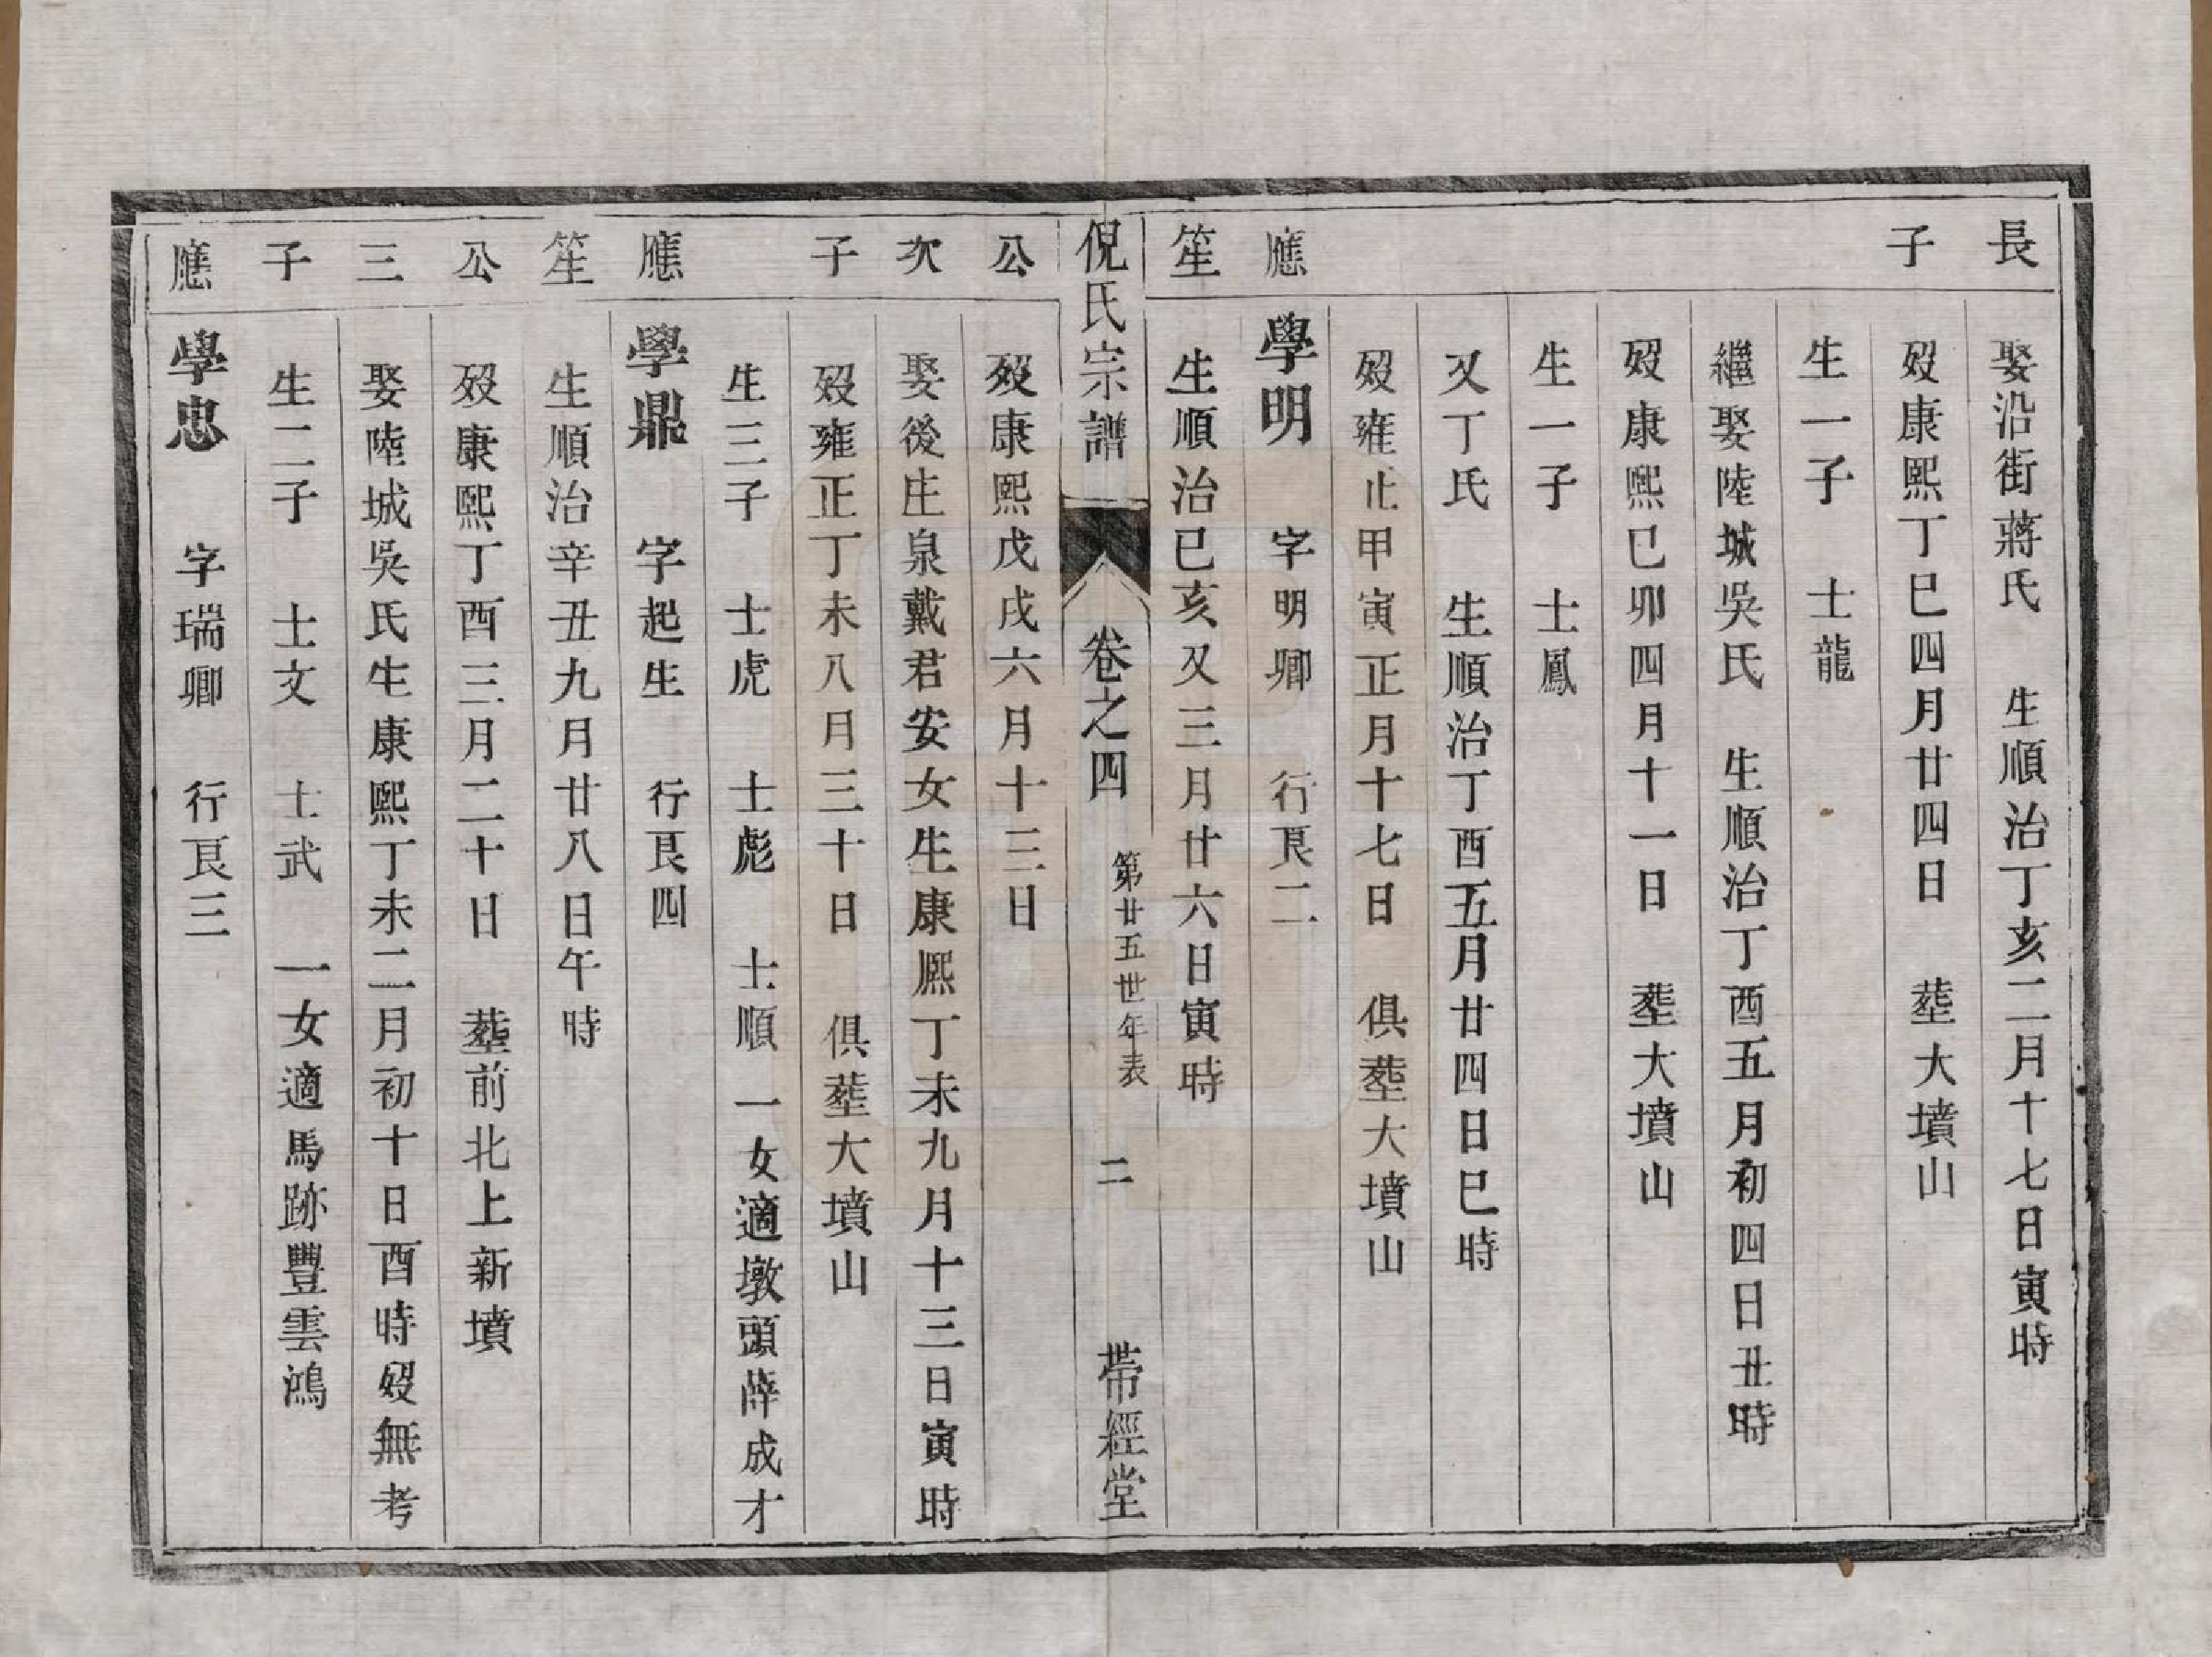 長
娶沿街蔣氏　生順治丁亥二月十七日寅時
子
歿康熙丁巳四月廿四日　塟大墳山
生一子　士龍
繼娶陸城吳氏　生順治丁酉五月初四日丑時
歿康熙己卯四月十一日　塟大墳山
生一子　士鳳
又丁氏　生順治丁酉五月廿四日巳時
歿雍正甲寅正月十七日　俱塟大墳山
應
學明　字明卿　行良二
笙
生順治己亥又三月廿六日寅時
倪氏宗譜　卷之四　第廿五世年表　二　帶經堂
公
歿康熙戊戌六月十三日
次
娶後庄泉戴君安女生康熙丁未九月十三日寅時
子
歿雍正丁未八月三十日　俱塟大墳山
生三子　士虎　士彪　士順　一女適墩頭薛成才
應
學鼎　字起生　行良四
笙
生順治辛丑九月廿八日午時
公
歿康熙丁酉三月二十日　塟前北上新墳
三
娶陸城吳氏生康熙丁未二月初十日酉時歿無考
子
生二子　士文　士武　一女適馬跡豐雲鴻
應
學忠　字瑞卿　行良三